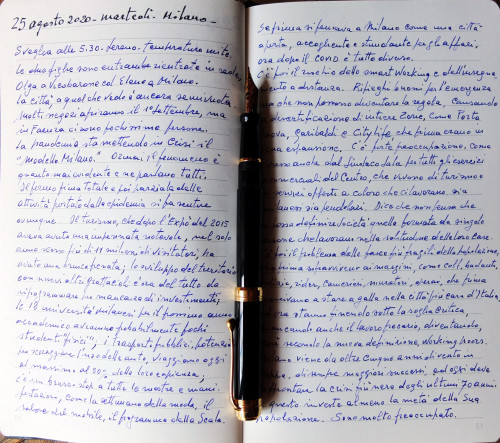 25 agosto 2020 - martedì - Milano -
Sveglia alle 5.30. Sereno. Temperatura mite.
Le due figlie sono entrambe rientrate in sede,
Olga a Vicobarone col Elena a Milano.
La città, a quel che vedo è ancora semivuota
molti negozi apriranno il 1° settembre, ma
in faenza ci sono pochissime persone.
La pandemia sta mettendo in crisi il
"Modello Milano". Ormai il fenomeno è
quanto mai evidente e ne parlano tutti.
Il fermo prima totale e poi parziale delle
attività portato dalla epidemia si fa sentire
ovunque. Il turismo, che dopo l'Expò del 2015
aveva avuto una impennata notevole, nel solo
anno scorso più di 11 milioni di visitatori, ha
avuto una brusca frenata; lo sviluppo del territorio
con nuovi altri grattacieli è ora del tutto da
riprogrammare per mancanza di investimenti.
le 18 università milanesi per il prossimo anno
accademico avranno probabilmente pochi
studenti "fisici"; i trasporti pubblici, potenziati
per scoraggiare l'uso delle auto, viaggiano oggi
al massimo al 50% della loro capienza;
c'è un brusco stop a tutte le mostre e mani-
festazioni, come la settimana della moda, il
salone del mobile, il programma della Scala.
Se prima si pensava a Milano come una città
aperta, accogliente e stimolante per gli affari
ora dopo il covid è tutto diverso.
C'è poi il rischio dello smart Working e dell'insegna-
a distanza. Ripieghi buoni per l'emergenza
ma che non possono diventare la regola, causando
desertificazione di intere Zone, come Porta
Nova, Garibaldi e CityLife, che prima erano in
espansione. C'è forte preoccupazione, come
anche dal Sindaco Sala per tutti gli esercizi
commerciali del Centro, che vivono di turismo e
servizi offerti a coloro che ci lavorano, sia
milanesi sia pendolari. Dico che non penso che
possa definire società quella formata da singole
persone che lavorano nella solitudine delle loro case
poi il problema delle fasce più fragili della popolazione,
prima sopravviveva ai margini, come colf, badanti,
rider, camerieri, muratori, operai, che prima
a stare a galla nella città più cara d'Italia,
ora stanno finendo sotto la soglia critica,
anche il lavoro precario, diventando,
secondo la nuova definizione, Working poors.
Milano viene da oltre cinque anni di vento in
poppa, di sempre maggiori successi ed oggi deve
affrontare la crisi più nera degli ultimi 70 anni
questo investe almeno la metà della sua
popolazione. Sono molto preoccupato.